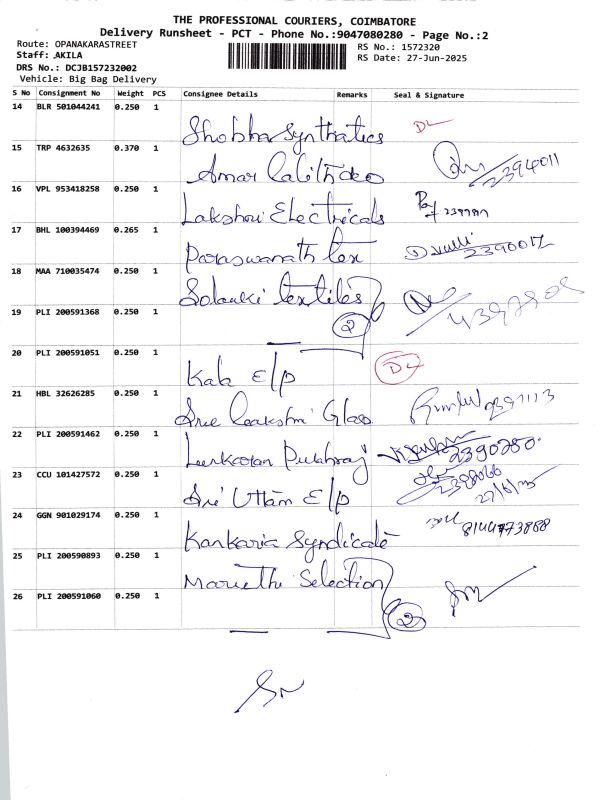 THE PROFESSIONAL COURIERS, COIMBATORE
Delivery Runsheet - PCT - Phone No.:9047080280 - Page No.:2
Route: OPANAKARASTREET
RS No.: 1572320
Staff: AKILA
RS Date: 27-Jun-2025
DRS No.: DCJB157232002
Vehicle: Big Bag Delivery
S No Consignment No Weight PCS Consignee Details Remarks Seal & Signature
14 BLR 501044241 0.250 1 Shobha Synthatics DL
15 TRP 4632635 0.370 1 Amar 2394011
16 VPL 953418258 0.250 1 Lakshmi Electricals
17 BHL 100394469 0.265 1 Paraswanath tex 2390012
18 MAA 710035474 0.250 1 Solanki textiles
19 PLI 200591368 0.250 1 2
20 PLI 200591051 0.250 1 Kala E/p DL
21 HBL 32626285 0.250 1 Sree Leakshmi Glass
22 PLI 200591462 0.250 1 2390280
23 CCU 101427572 0.250 1 Sri Uttam E/p 27/6/25
24 GGN 901029174 0.250 1 Kankaria Syndicate
25 PLI 200590893 0.250 1 Maruthi Selection
26 PLI 200591060 0.250 1 2